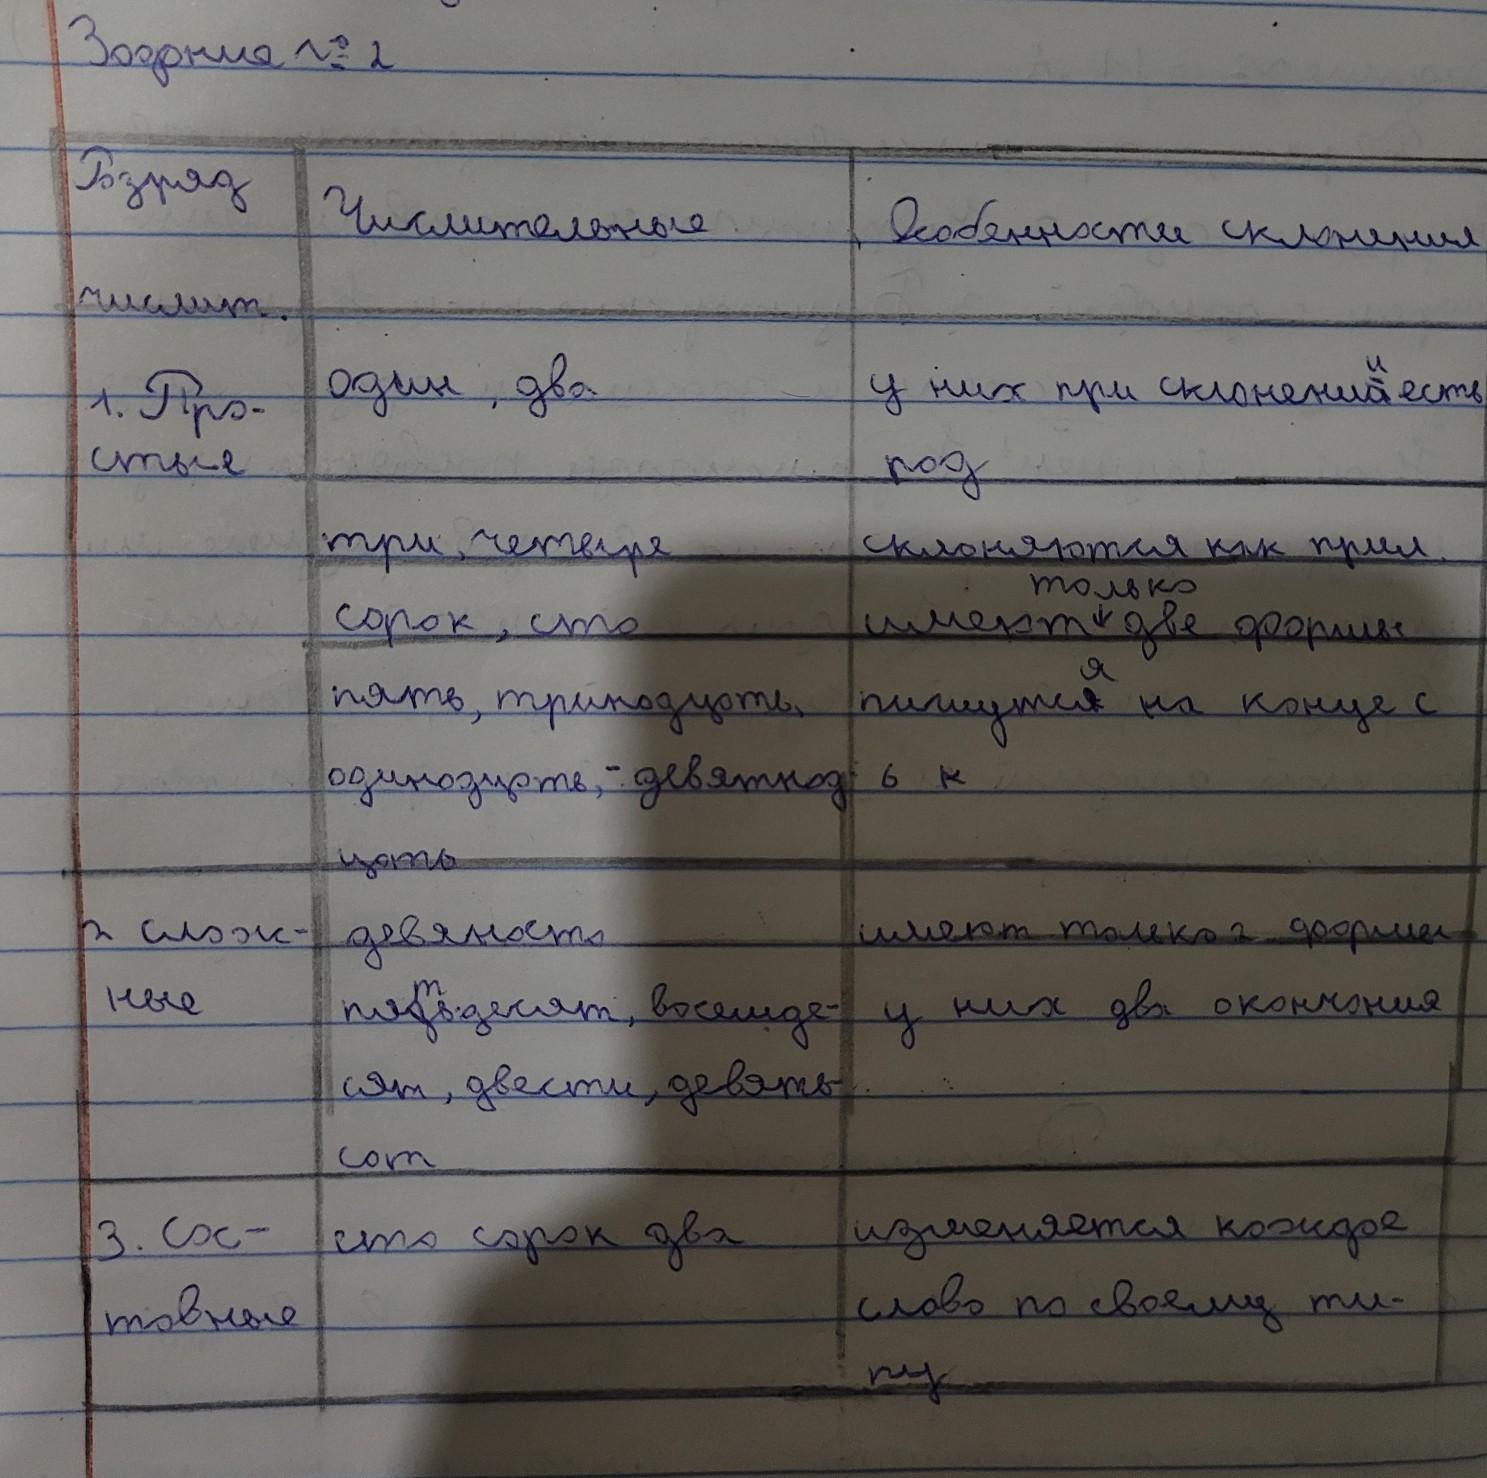 Задание № 2
Взряд
числит.
Числительные
Особенности склонения
1. Про-
стые
один, два
у них при склонений и есть
род
три, четыре
склоняются как прил.
сорок, сто
только
имеют две формы
пять, тринадцать,
одинадцать, - девятнад
цать
я
пишутся на конце с
ь
2 слож-
ные
девяносто
имеют только 2 формы
т
пядьдесят, восемьде-
сят, двести, девять-
сот
у них два окончания
3. Сос-
тавные
сто сорок два
изменяется каждое
слово по своему ти-
пу